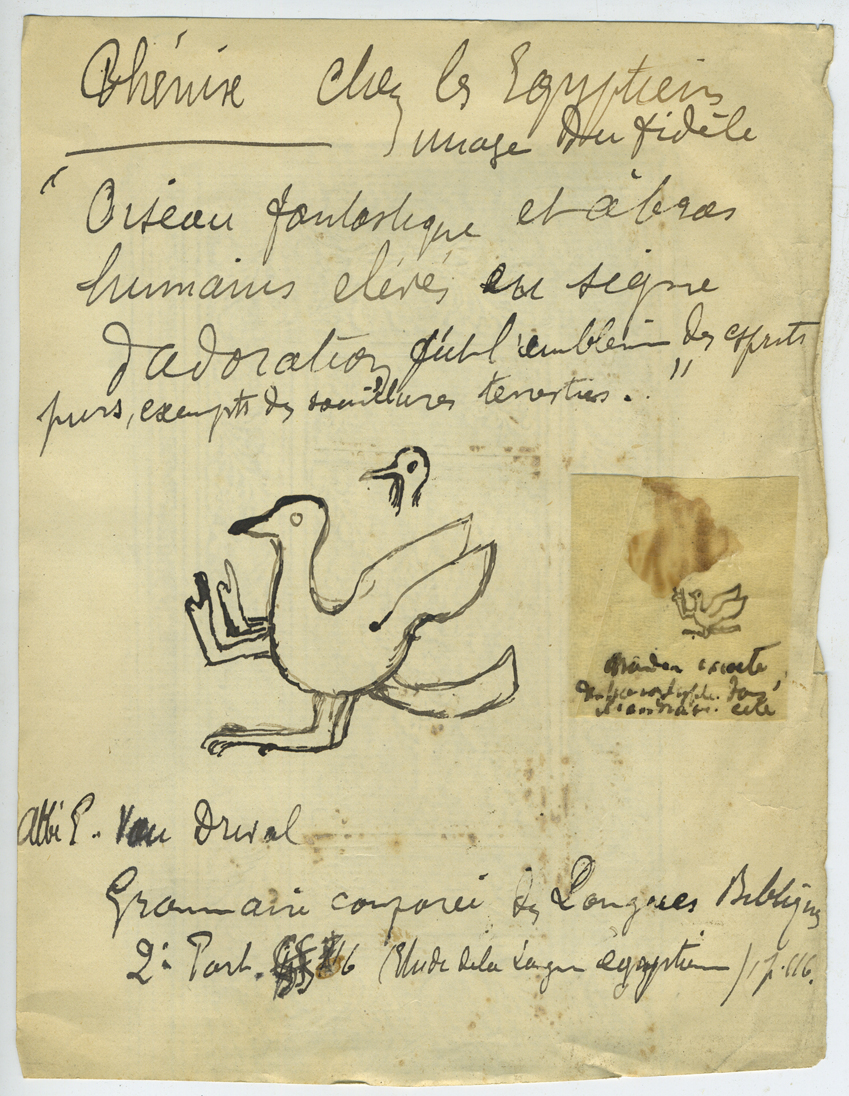 Phénix chez les Egyptiens
image du fidèle
" Oiseau fantastique et à bras
humains elévés en signe
d'adoration fut l'emblème des esprits
purs, exempts des souillures terrestres. "
exacte
dans
Abbé E. Van Drival
Grammaire comparée des Langues Bibliques
2e Part. 116 (Etude de la Langue egyptienne), p. 116.